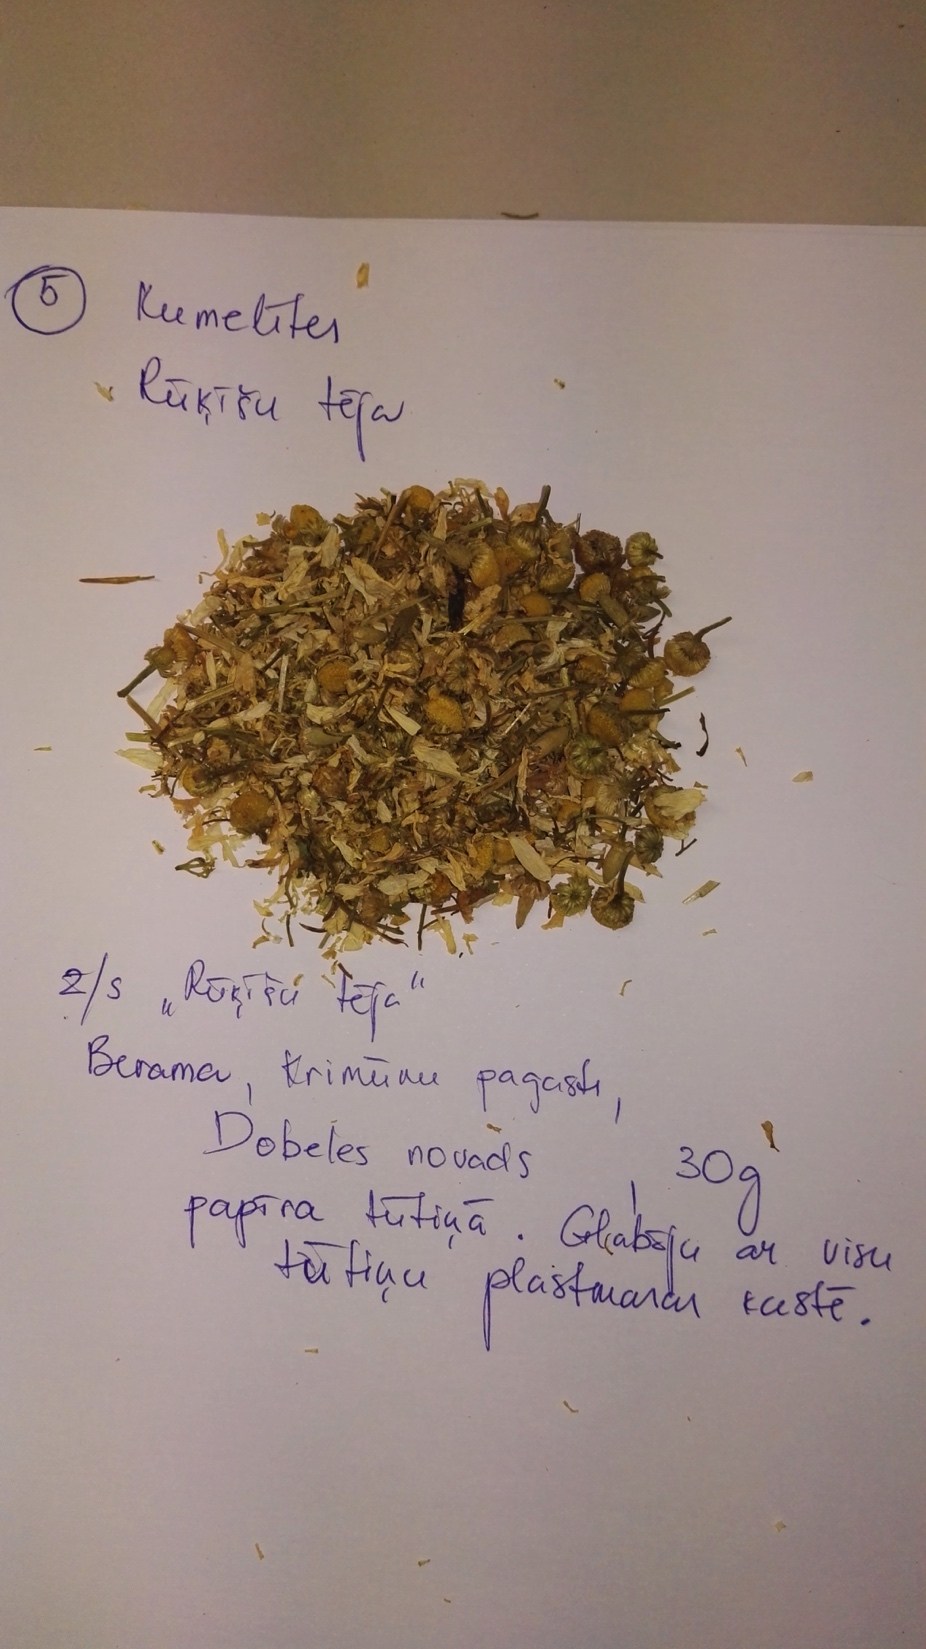 5 Kumelītes
Rūķīšu tēja
z/s „Rūķīšu tēja"
Berama, Krimūnu pagasts,
Dobeles novads, 30g
papīra tūtiņā. Glabāju ar visu
tūtiņu plastmasas kastē.